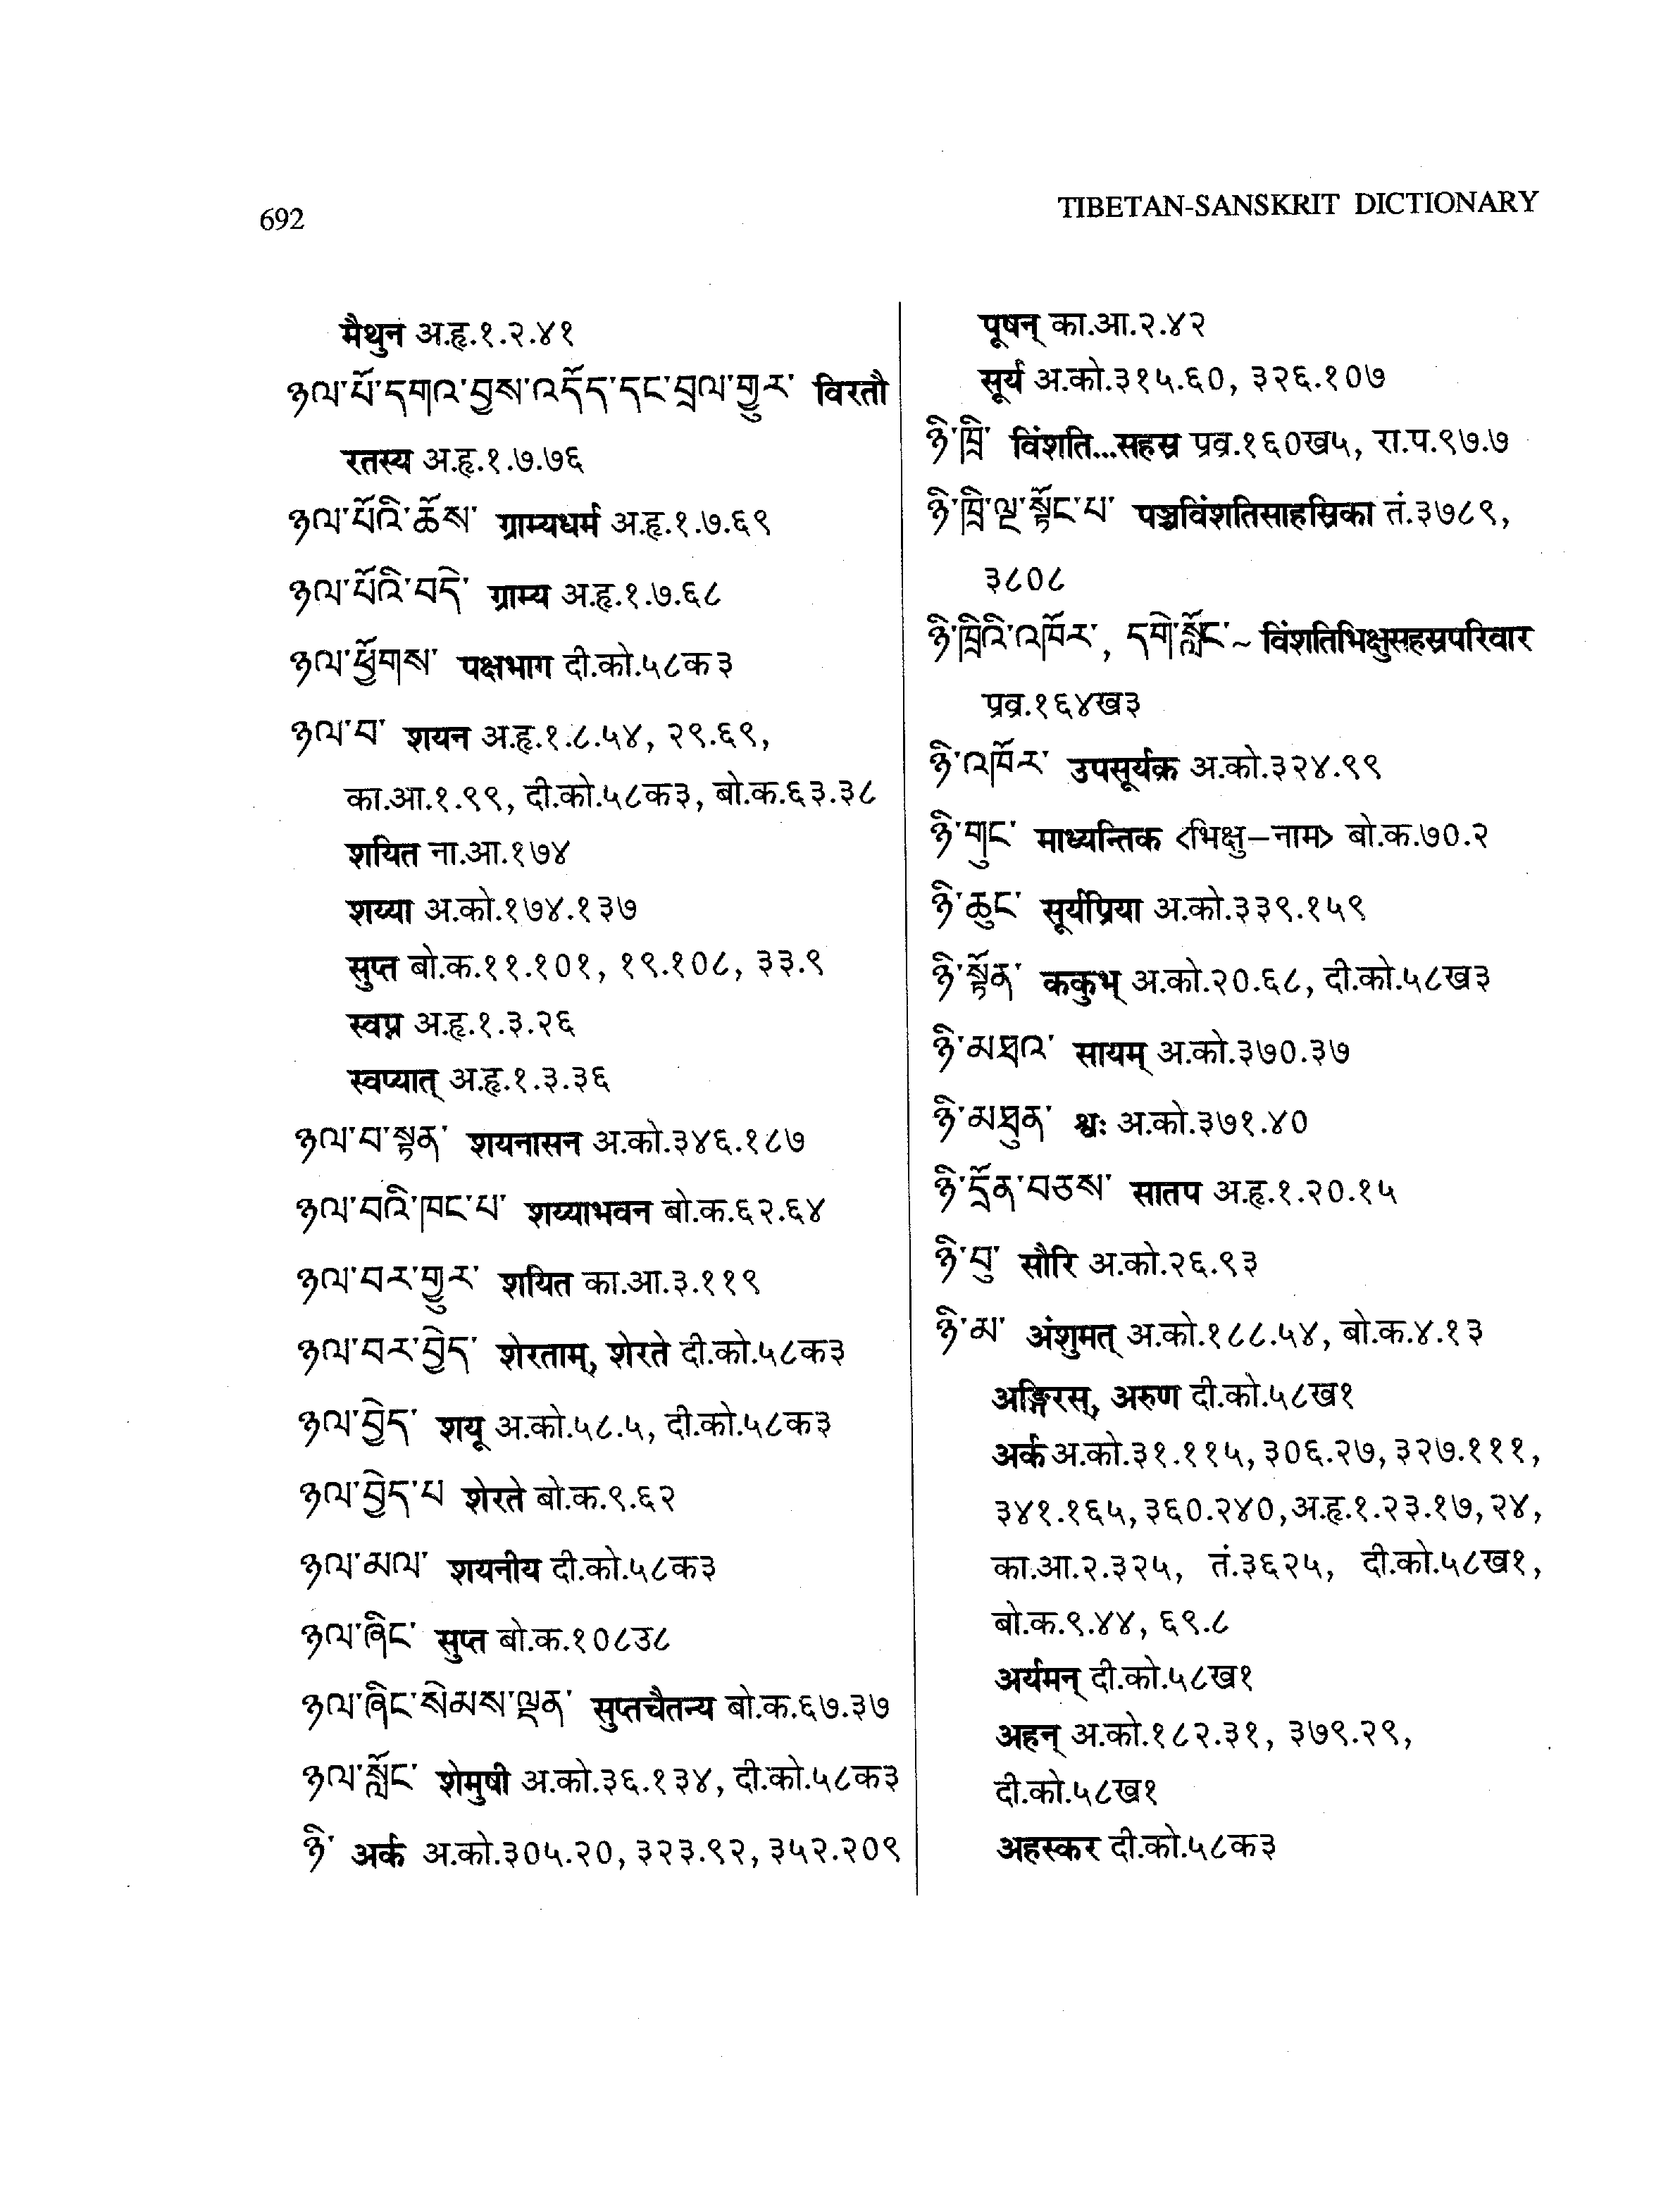 692
TIBETAN-SANSKRIT DICTIONARY
मैथुन अ.हृ.१.२.४१
ཉལ་པོ་དགའ་བྱས་འདོད་དང་བྲལ་གྱུར་ विरतौ
रतस्य अ.हृ.१.७.७६
ཉལ་པོའི་ཆོས་ ग्राम्यधर्म अ.हृ.१.७.६९
ཉལ་པོའི་བདེ་ ग्राम्य अ.हृ.१.७.६८
ཉལ་ཕྱོགས་ पक्षभाग दी.को.५८क३
ཉལ་བ་ शयन अ.हृ.१.८.५४, २९.६९,
का.आ.१.९९, दी.को.५८क३, बो.क.६३.३८
शयित ना.आ.१७४
शय्या अ.को.१७४.१३७
सुप्त बो.क.११.१०१, १९.१०८, ३३.९
स्वप्न अ.हृ.१.३.२६
स्वप्यात् अ.हृ.१.३.३६
ཉལ་བ་སྟན་ शयनासन अ.को.३४६.१८७
ཉལ་བའི་ཁང་པ་ शय्याभवन बो.क.६२.६४
ཉལ་བར་གྱུར་ शयित का.आ.३.११९
ཉལ་བར་བྱེད་ शेरताम्, शेरते दी.को.५८क३
ཉལ་བྱེད་ शयू अ.को.५८.५, दी.को.५८क३
ཉལ་བྱེད་པ शेरते बो.क.९.६२
ཉལ་མལ་ शयनीय दी.को.५८क३
ཉལ་ཞིང་ सुप्त बो.क.१०८उ८
ཉལ་ཞིང་སེམས་ལྡན་ सुप्तचैतन्य बो.क.६७.३७
ཉལ་སློང་ शेमुषी अ.को.३६.१३४, दी.को.५८क३
ཉི་ अर्क अ.को.३०५.२०, ३२३.९२, ३५२.२०९
पूषन् का.आ.२.४२
सूर्य अ.को.३१५.६०, ३२६.१०७
ཉི་ཁྲི་ विंशति...सहस्र प्रव्र.१६०ख५, रा.प.९७.७
ཉི་ཁྲི་ལྔ་སྟོང་པ་ पञ्चविंशतिसाहस्रिका तं.३७८९,
३८०८
ཉི་ཁྲིའི་འཁོར་, དགེ་སློང་~ विंशतिभिक्षुसहस्रपरिवार
प्रव्र.१६४ख३
ཉི་འཁོར་ उपसूर्यक्र अ.को.३२४.९९
ཉི་གུང་ माध्यन्तिक <भिक्षु–नाम> बो.क.७०.२
ཉི་ཆུང་ सूर्यप्रिया अ.को.३३९.१५९
ཉི་སྟོན་ ककुभ् अ.को.२०.६८, दी.को.५८ख३
ཉི་མཐའ་ सायम् अ.को.३७०.३७
ཉི་མཐུན་ श्वः अ.को.३७१.४०
ཉི་དྲོན་བཅས་ सातप अ.हृ.१.२०.१५
ཉི་བུ་ सौरि अ.को.२६.९३
ཉི་མ་ अंशुमत् अ.को.१८८.५४, बो.क.४.१३
अङ्गिरस्, अरुण दी.को.५८ख१
अर्क अ.को.३१.११५, ३०६.२७, ३२७.१११,
३४१.१६५, ३६०.२४०, अ.हृ.१.२३.१७, २४,
का.आ.२.३२५, तं.३६२५, दी.को.५८ख१,
बो.क.९.४४, ६९.८
अर्यमन् दी.को.५८ख१
अहन् अ.को.१८२.३१, ३७९.२९,
दी.को.५८ख१
अहस्कर दी.को.५८क३